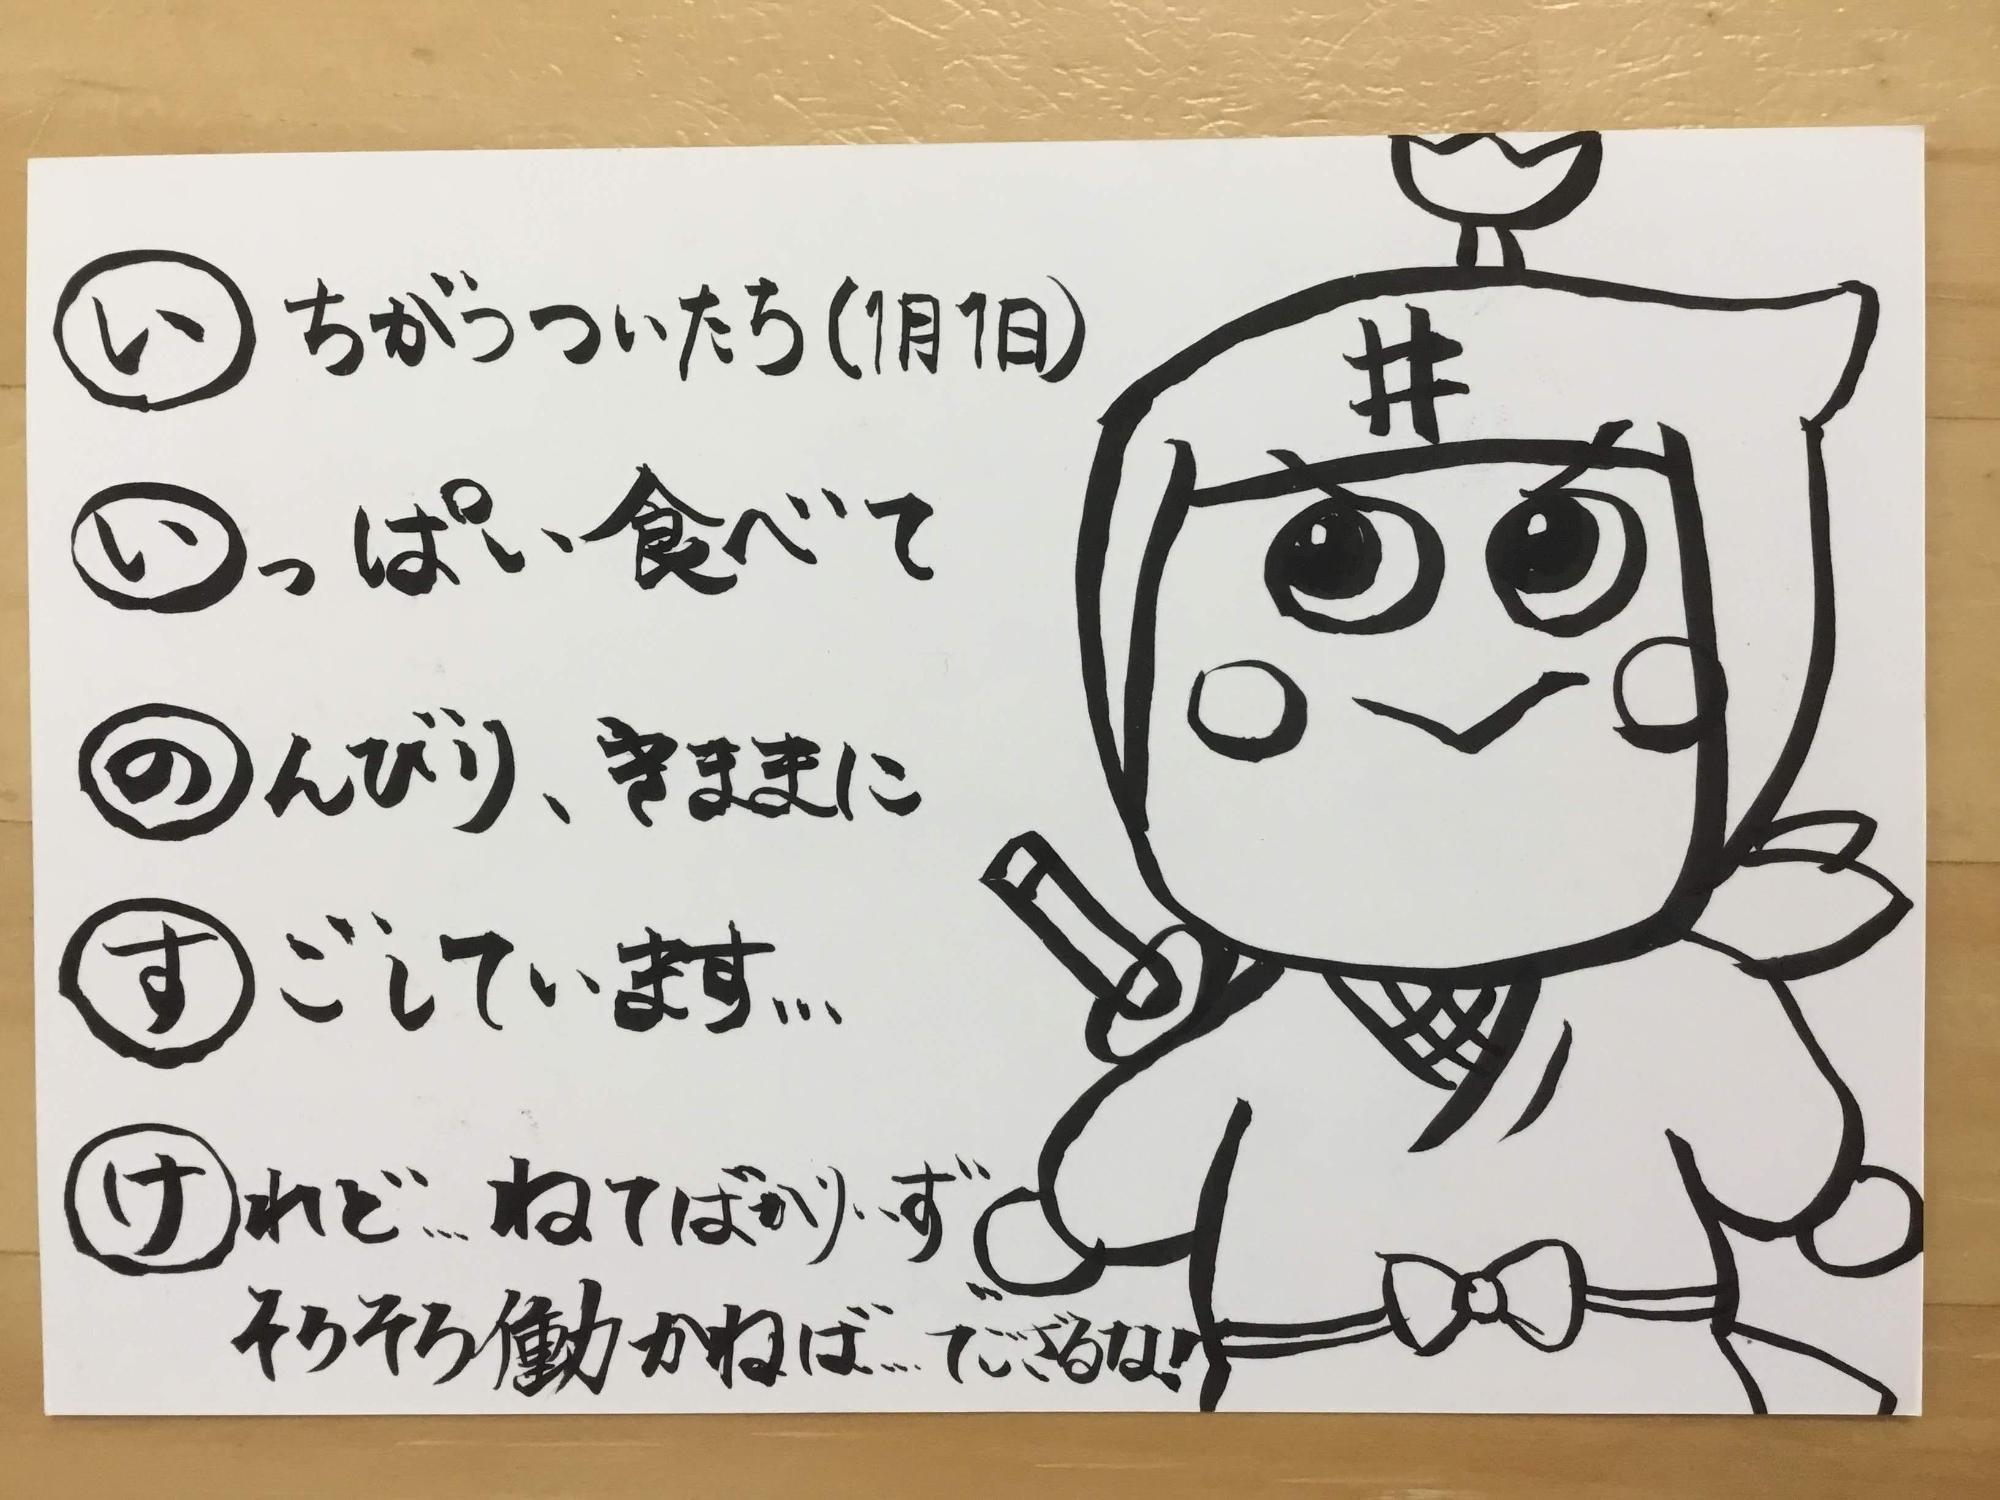 いちがつついたち(1月1日)
いっぱい食べて
のんびり、きままに
すごしています…
けれど…ねてばかりいず
そろそろ働かねば…でござるな!!
井